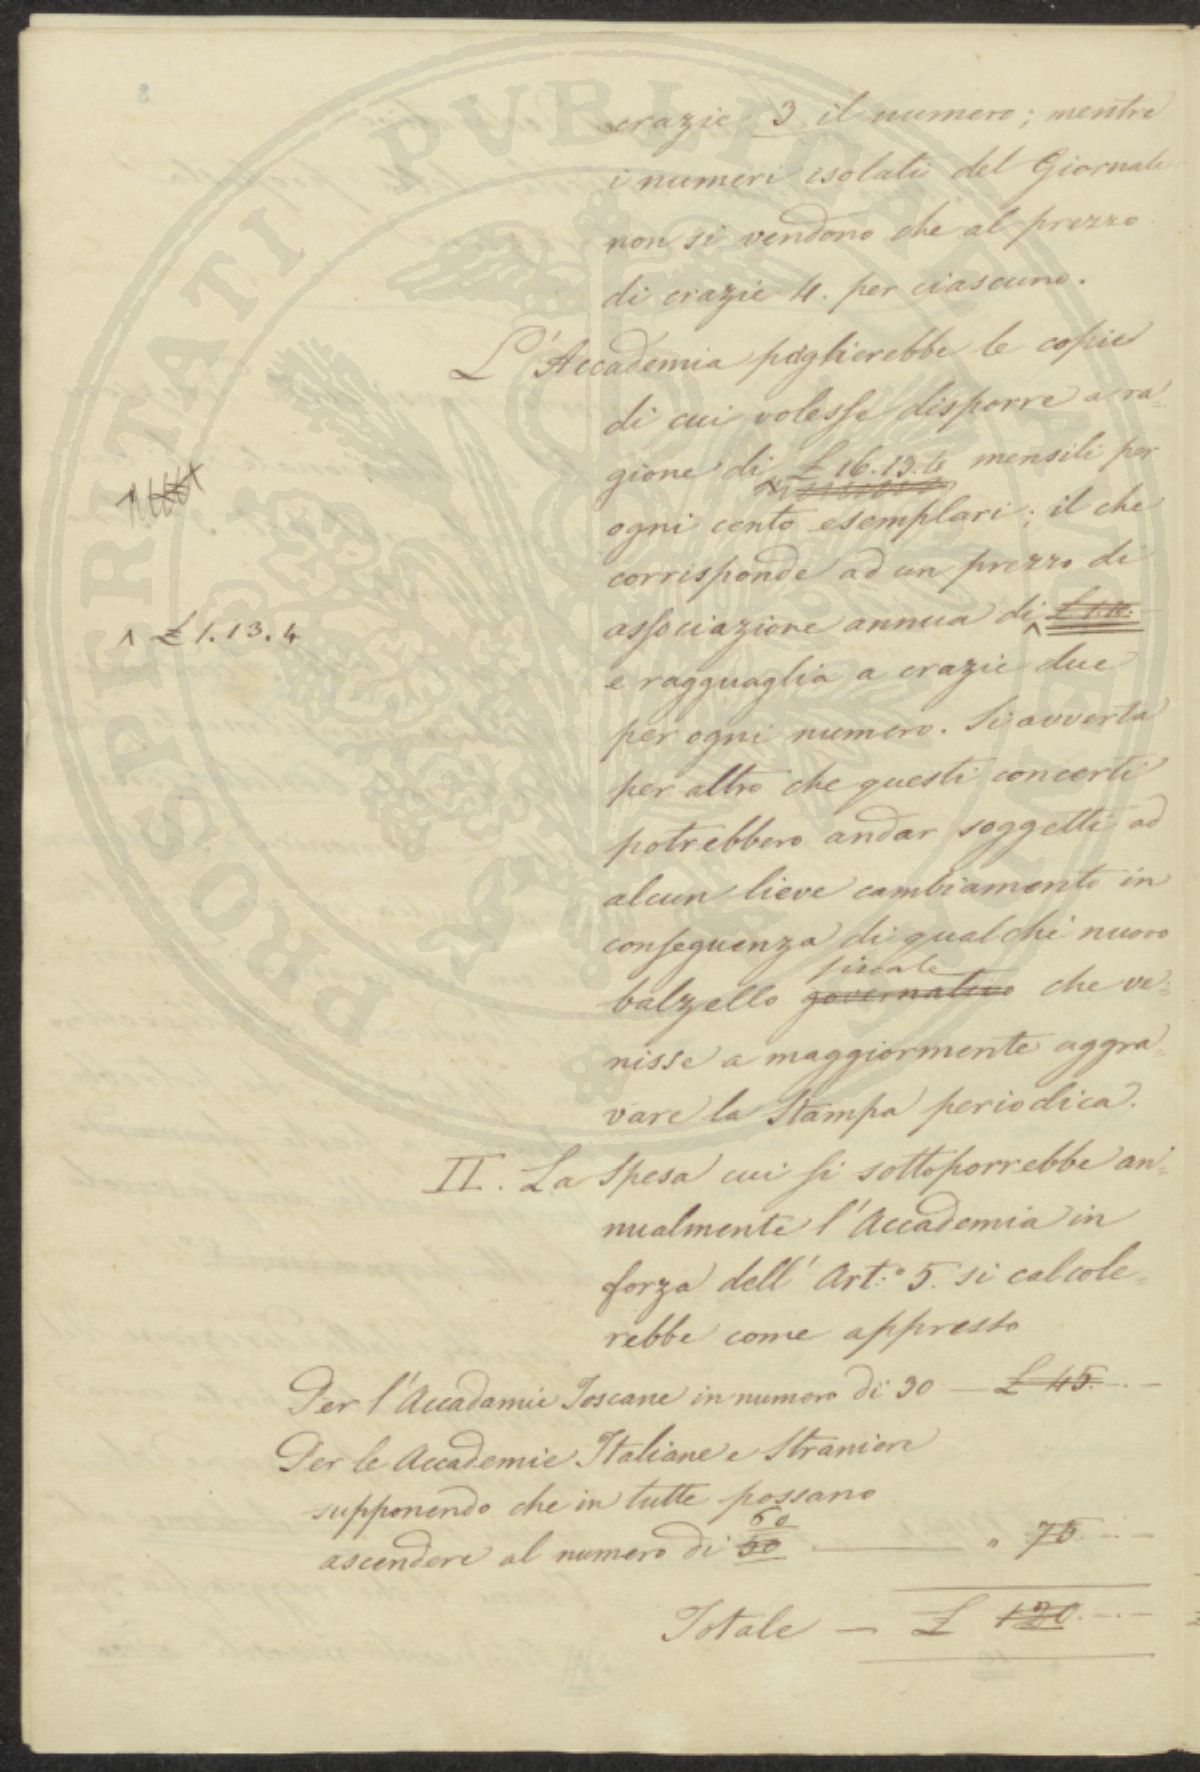 crazie 3 il numero; mentre
i numeri isolati del Giornale
non si vendono che al prezzo
di crazie 4. per ciascuno.
L'Accademia piglierebbe le copie
di cui volesse disporre a ra=
gione di £ 16.13.4 mensili per
ogni cento esemplari; il che
corrisponde ad un prezzo di
associazione annua di
^ £ 1.13.4
e ragguaglia a crazie due
per ogni numero. Si avverta
per altro che questi concerti
potrebbero andar soggetti ad
alcun lieve cambiamento in
conseguenza di qualche nuovo
fiscale
balzello governativo che ve=
nisse a maggiormente aggra=
vare la Stampa periodica.
II. La Spesa cui si sottoporrebbe an=
nualmente l'Accademia in
forza dell'Art.° 5. si calcole=
rebbe come appresso
Per l'Accadamie Toscane in numero di 30 — £ 45. — . —
Per le Accademie Italiane e Straniere
supponendo che in tutte possano
60
ascendere al numero di 50 — " 75. — . —
Totale — £ 120. — . —
PROSPERITATI PUBLICAE